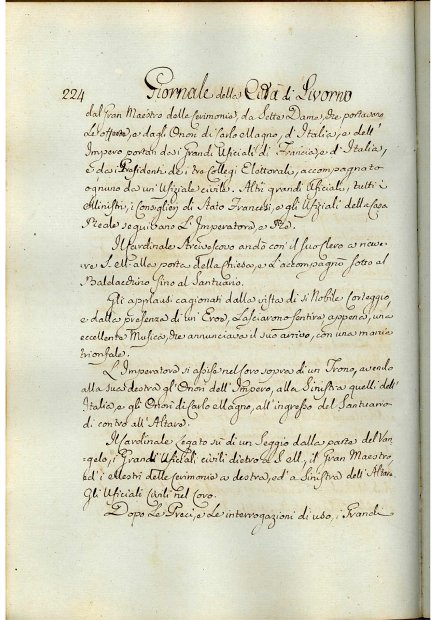 224 Giornale della Città di Livorno
dal Gran Maestro delle Cerimonie, da Sette Dame, che portavano
Le offerte, e dagli Onori di Carlo Magno, d'Italia, e dell'
Impero portati dai Grandi Ufiziali di Francia, e d'Italia,
e dai Presidenti dei tre Collegi Elettorali, accompagnato
ognuno da un'Ufiziale civile. Altri grandi Ufiziali, tutti i
Ministri, i Consiglieri di Stato Francesi, e gli Ufiziali della Casa
Reale seguitavano L'Imperatore e Re.
Il Cardinale Arcivescovo andò con il suo Clero a riceve-
re S. M. alla porta della Chiesa, e L'accompagnò sotto al
Baldacchino fino al Santuario.
Gli applausi cagionati dalla vista di sì Nobile Corteggio,
e dalla presenza di un'Eroe, Lasciarono sentire appena, una
eccellente Musica, che annunciava il suo arrivo, con una marcia
trionfale.
L'Imperatore si assise nel Coro sopra di un Trono, avendo
alla sua destra gl'Onori dell'Impero, alla Sinistra quelli dell'
Italia, e gli Onori di Carlo Magno, all'ingresso del Santuario
di contro all'Altare.
Il Cardinale Legato su di un Seggio dalla parte del Van-
gelo, i Grandi Ufiziali civili dietro a S. M., il Gran Maestro,
ed i Maestri delle Cerimonie a destra, ed a Sinistra dell'Altare.
Gli Ufiziali Civili nel Coro.
Dopo Le Preci, e Le interrogazioni di uso, i Grandi